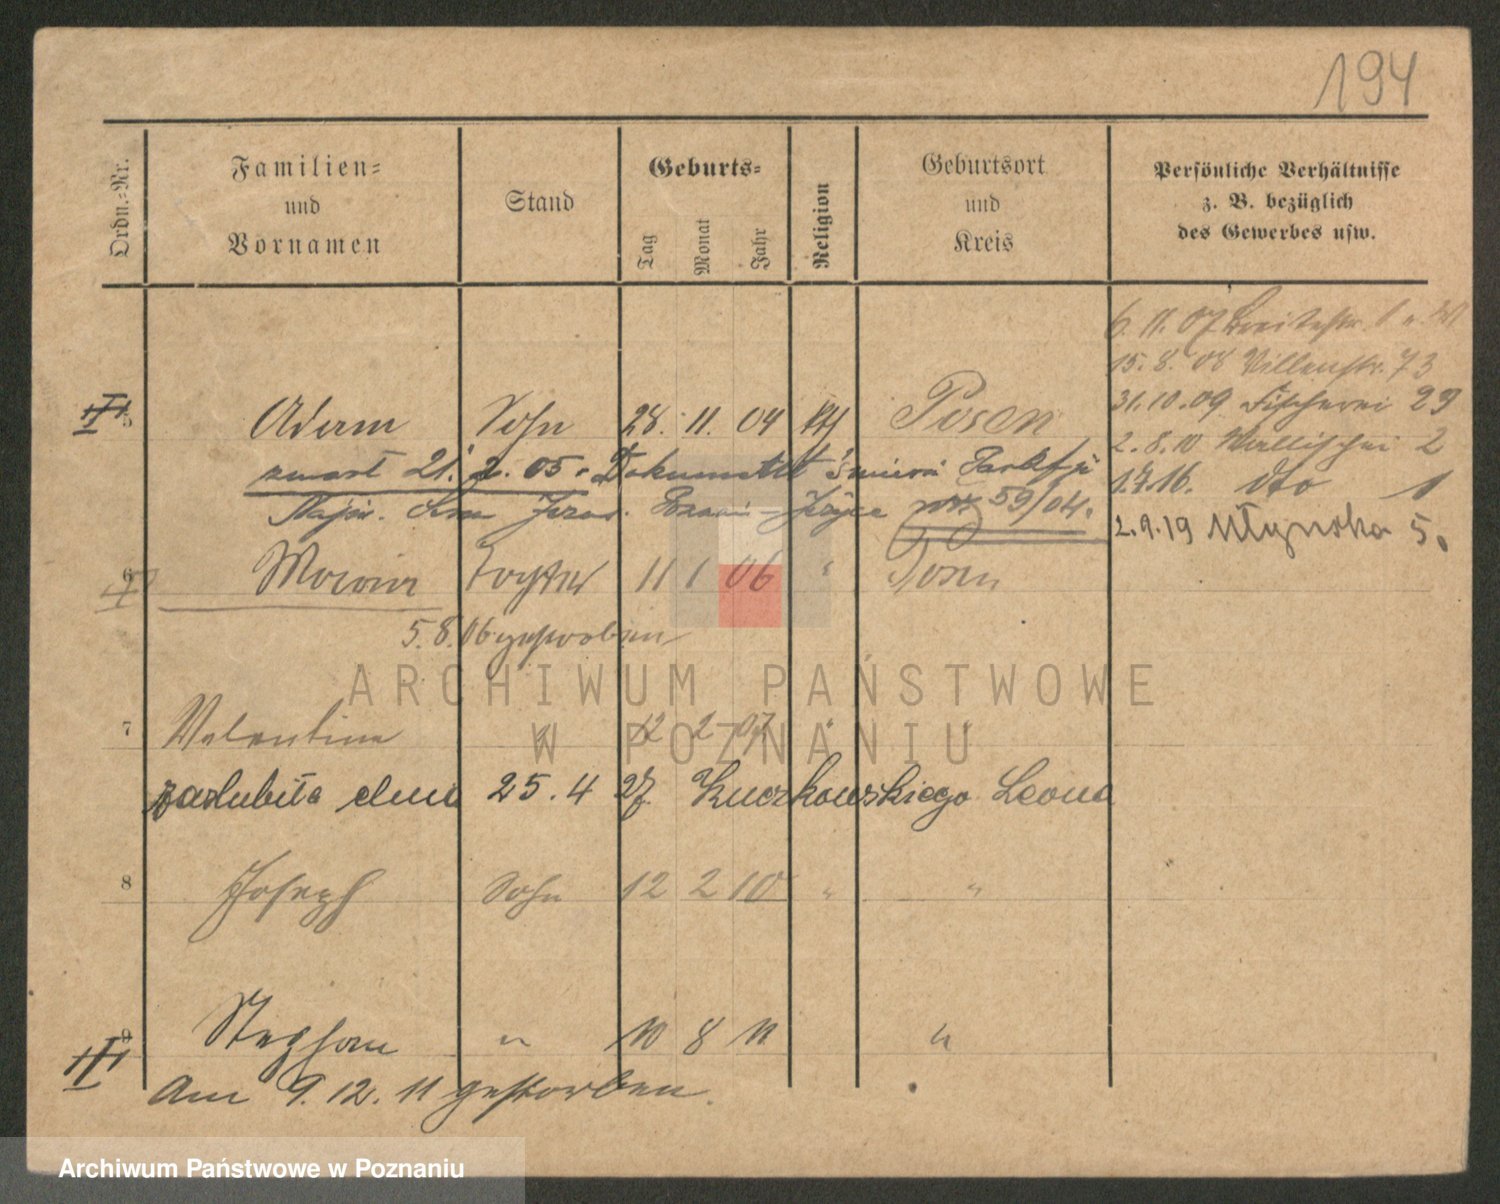 194
Ordn.-Nr.
Familien-
und
Vornamen
Stand
Geburts-
Tag
Monat
Jahr
Religion
Geburtsort
und
Kreis
Persönliche Verhältnisse
z. B. bezüglich
des Gewerbes usw.
6. 11. 07 Breitestr.
15. 8. 08 Villenstr. 73
31. 10. 09 Fischerei 29
2. 8. 10 Wallischei 2
1.7.16. dto 1
2.9.19 Młynska 5.
5 Adam Sohn 28. 11. 04 kth Posen
zmarł 21. 2. 05. Dokument śmierci
59/04.
6 Tochter 11 1 06 " Posen
5.8.06 gestorben
7 Valentina " 12 2 07 " "
zaślubiła dnia 25.4 27. Kuczkowskiego Leona
8 Joseph Sohn 12 2 10 " "
9 Stephan " 10 8 11 "
Am 9.12.11 gestorben.
ARCHIWUM PAŃSTWOWE
W POZNANIU
Archiwum Państwowe w Poznaniu